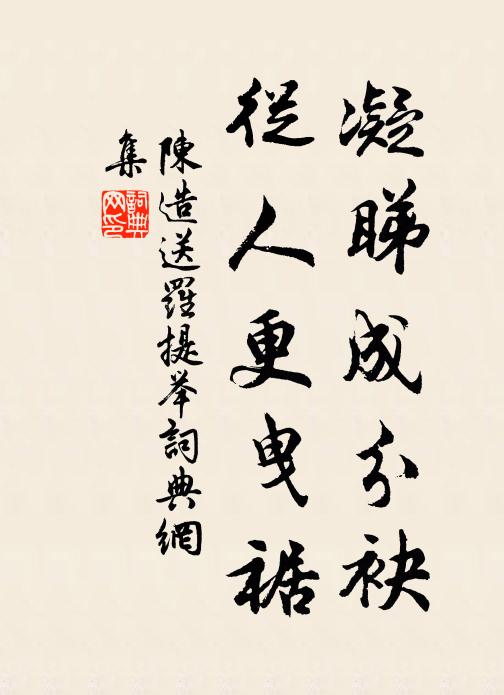 凝睇成分袂
從人更曳裾
陳造送羅提举詞典網
集
詞典网印